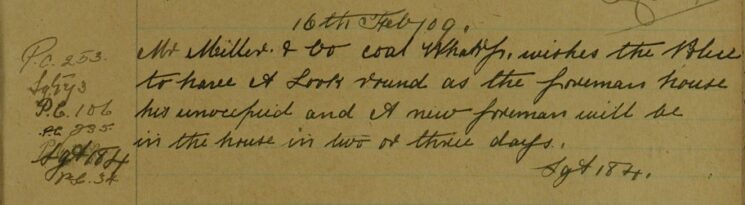 16th Feb/09.
P.C. 253.
Sgt 43
P.C. 106
P.C. 235
Sgt 184
P.C. 34
Mr Miller. & Co coal Wharf, wishes the Police
to have A Look round as the foreman house
his unoccupied and A new foreman will be
in the house in two or three days.
Sgt 184.